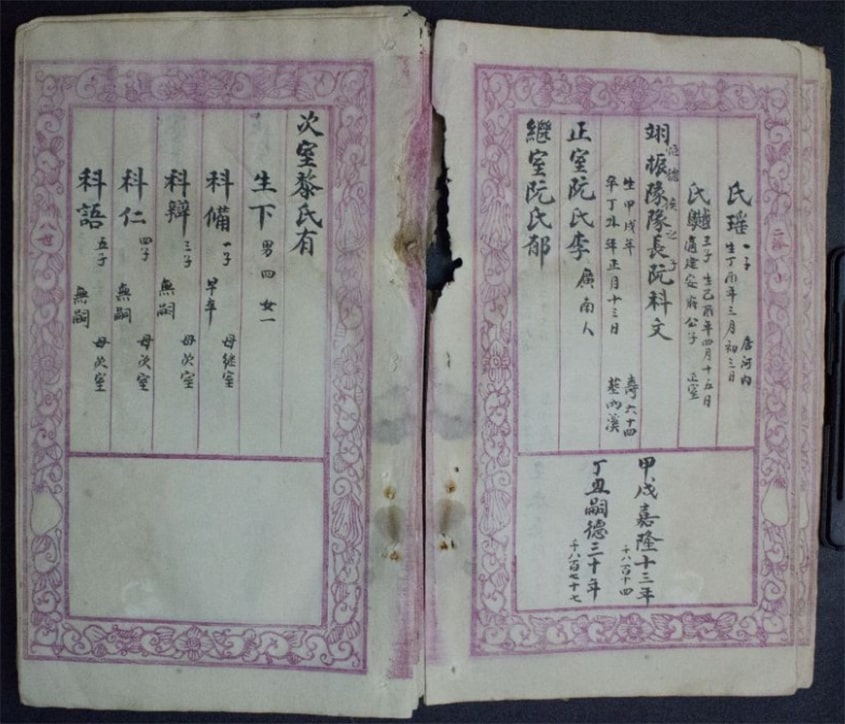 氏瑶 一子 居河内
生丁卯年三月初三日
氏 三子 生乙酉年四月十五日
適建安 公子 正室
翊振隊隊長阮科文
之子
生甲戌年 壽六十四
卒丁丑年正月十三日 墓内溪
正室阮氏李 廣南人
繼室阮氏郁
甲戌嘉隆十三年
千八百十四
丁丑嗣德三十年
千八百七十七
次室黎氏有
生下 男四 女一
科備 一子 早卒 母繼室
科辯 三子 無嗣 母次室
科仁 四子 無嗣 母次室
科語 五子 無嗣 母次室
八世